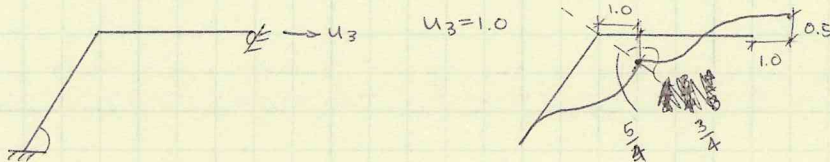 u₃
u₃=1.0
1.0
0.5
1.0
5/4
3/4